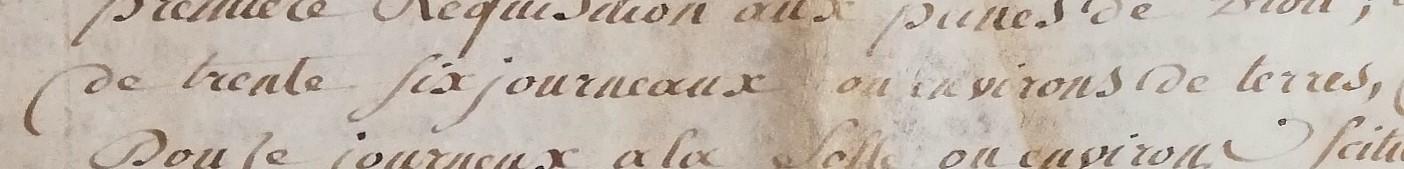 premiere Requisition aux peines de Droit,
de trente six journeaux ou environs de terres,
Douse journeux a la Solle ou environ scitu